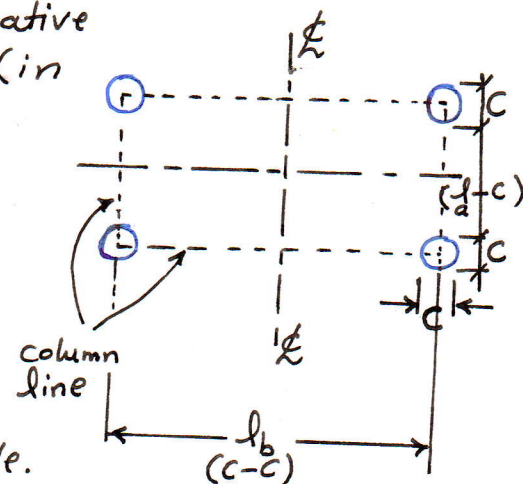 ative
(in
℄
C
(la-c)
C
C
℄
column
line
lb
(C-C)
e.